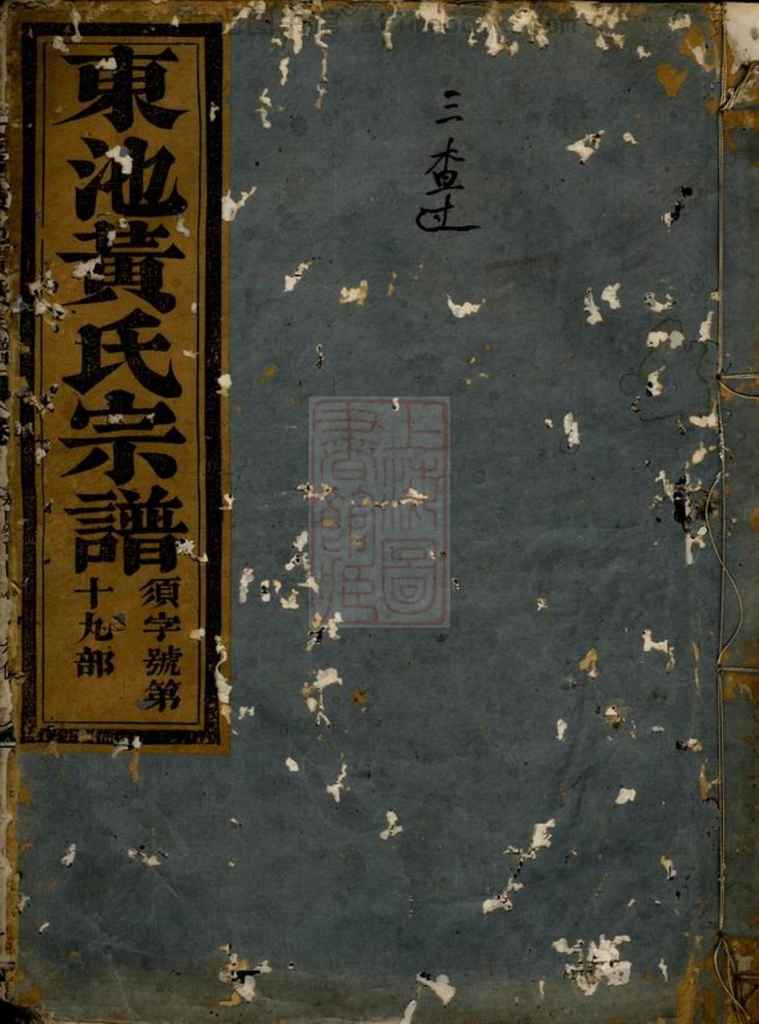 東池黃氏宗譜
須字號第
十九部
三查过
上海圖
書館藏